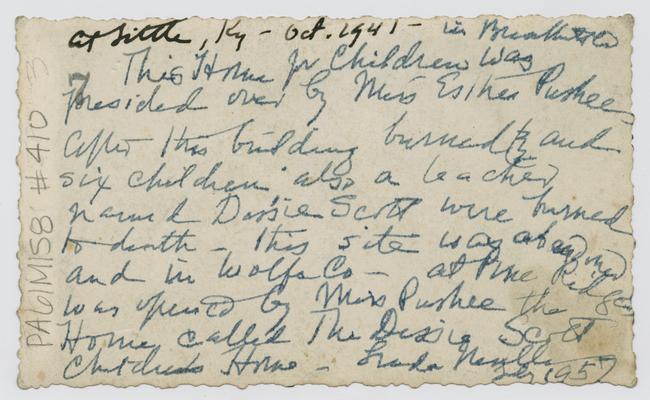 at Little, Ky - Oct. 1941 - in Breathitt Co
This Home for Children was
presided over by Miss Esther Pushee
After this building burned and
six children also a teacher
named Dessie Scott were burned
to death - this site was abandoned
and in Wolfe Co - at Pine Ridge
was opened by Miss Pushee the
Home called The Dessie Scott
Children's Home - Linda Neville
1957
PA61M158 #410 3